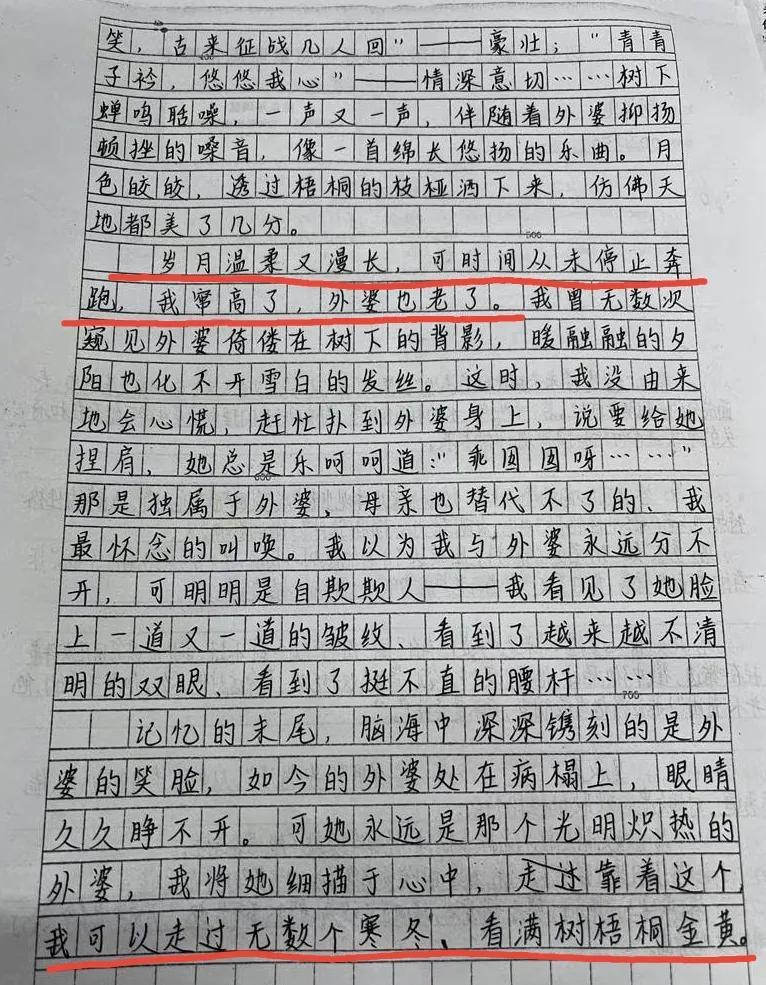 笑，古来征战几人回”——豪壮；“青青
子衿，悠悠我心”——情深意切……树下
蝉鸣聒噪，一声又一声，伴随着外婆抑扬
顿挫的嗓音，像一首绵长悠扬的乐曲。月
色皎皎，透过梧桐的枝桠洒下来，仿佛天
地都美了几分。
500
岁月温柔又漫长，可时间从未停止奔
跑，我窜高了，外婆也老了。我曾无数次
窥见外婆倚偻在树下的背影，暖融融的夕
阳也化不开雪白的发丝。这时，我没由来
地会心慌，赶忙扑到外婆身上，说要给她
捏肩，她总是乐呵呵道：“乖囡囡呀……”
600
那是独属于外婆，母亲也替代不了的、我
最怀念的叫唤。我以为我与外婆永远分不
开，可明明是自欺欺人——我看见了她脸
上一道又一道的皱纹、看到了越来越不清
明的双眼、看到了挺不直的腰杆……
700
记忆的末尾，脑海中深深镌刻的是外
婆的笑脸，如今的外婆处在病榻上，眼睛
久久睁不开。可她永远是那个光明炽热的
外婆，我将她细描于心中，走过靠着这个，
我可以走过无数个寒冬、看满树梧桐金黄。